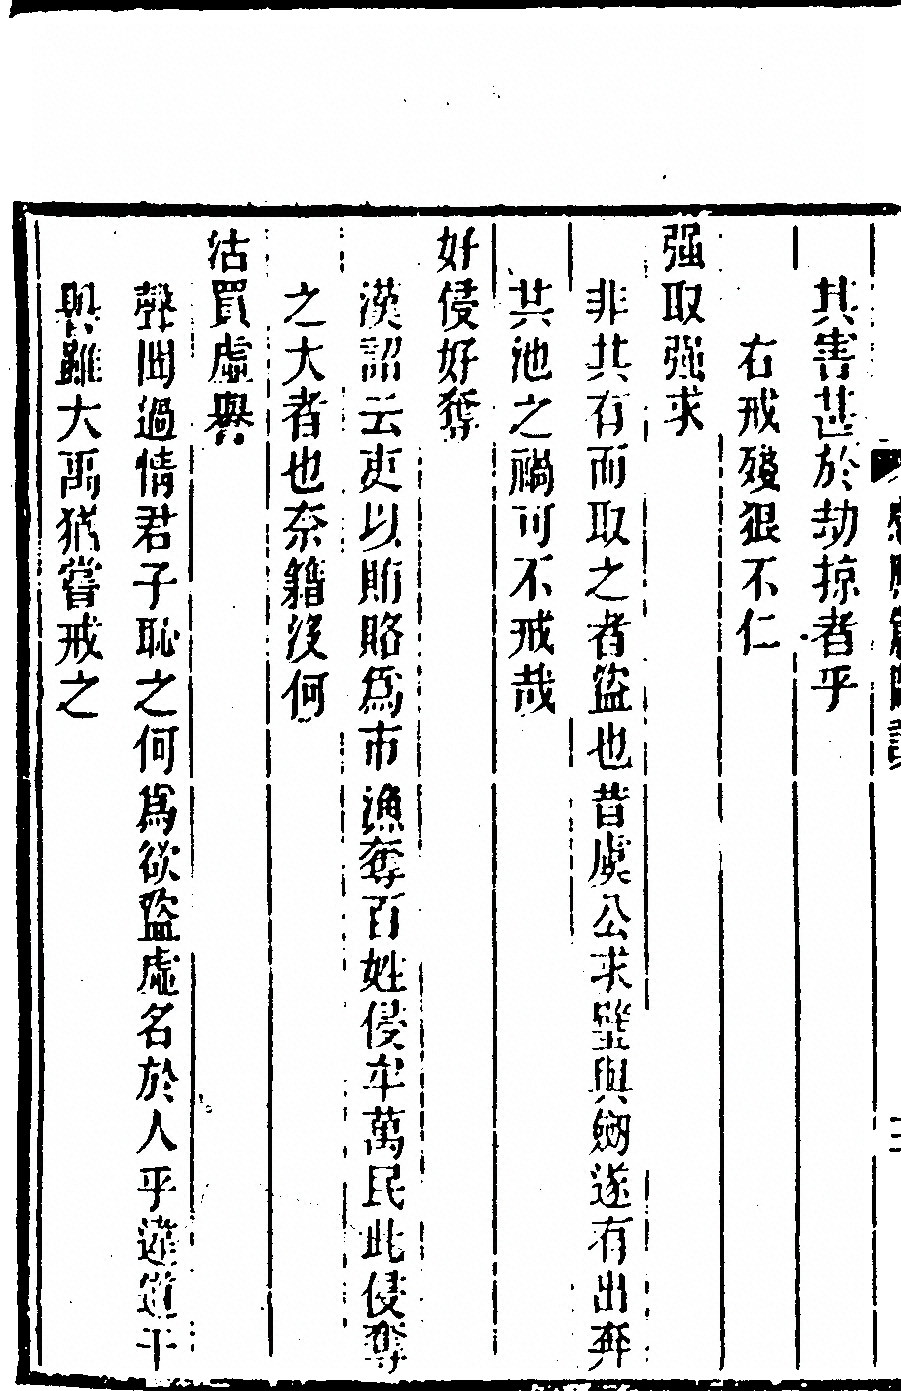 其害甚於劫掠者乎
右戒殘狠不仁
强取强求
非其有而取之者盜也昔虞公求璧與劒遂有出奔
共池之禍可不戒哉
好侵好奪
漢詔云吏以賄賂爲市漁奪百姓侵牟萬民此侵奪
之大者也奈籍沒何
沽買虛譽
聲聞過情君子恥之何爲欲盜虛名於人乎違道干
譽雖大禹猶嘗戒之